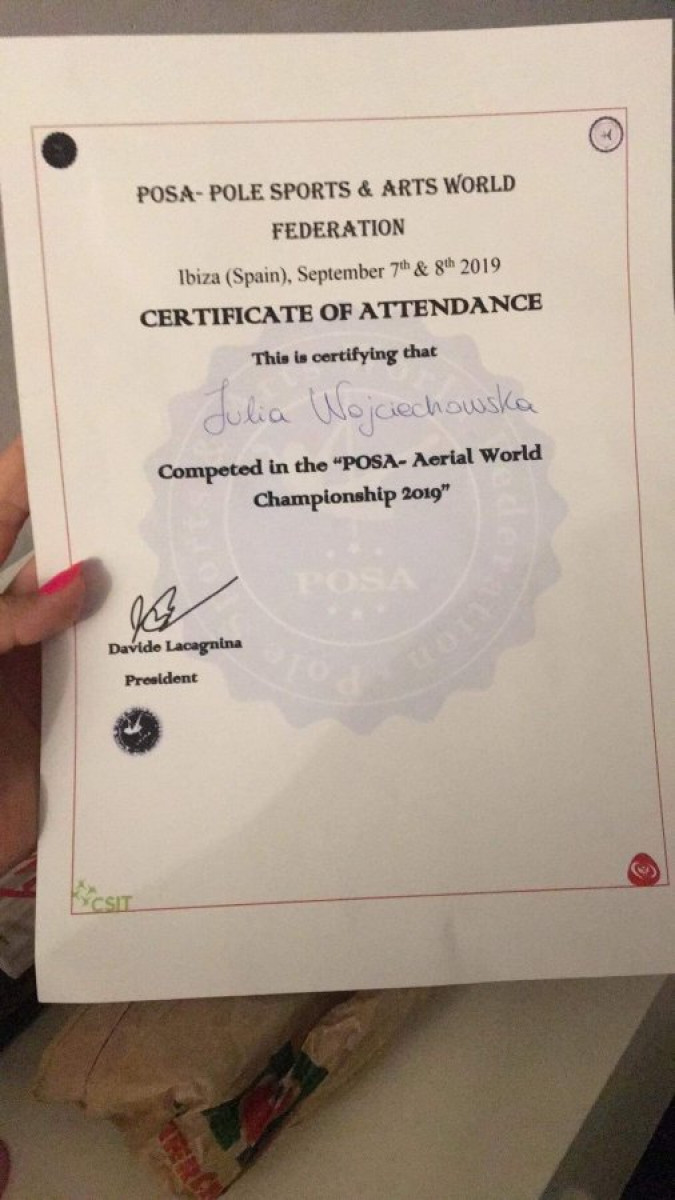 POSA- POLE SPORTS & ARTS WORLD
FEDERATION
Ibiza (Spain), September 7th & 8th 2019
CERTIFICATE OF ATTENDANCE
This is certifying that
Julia Wojciechowska
Competed in the “POSA- Aerial World
Championship 2019”
POSA
Davide Lacagnina
President
CSIT